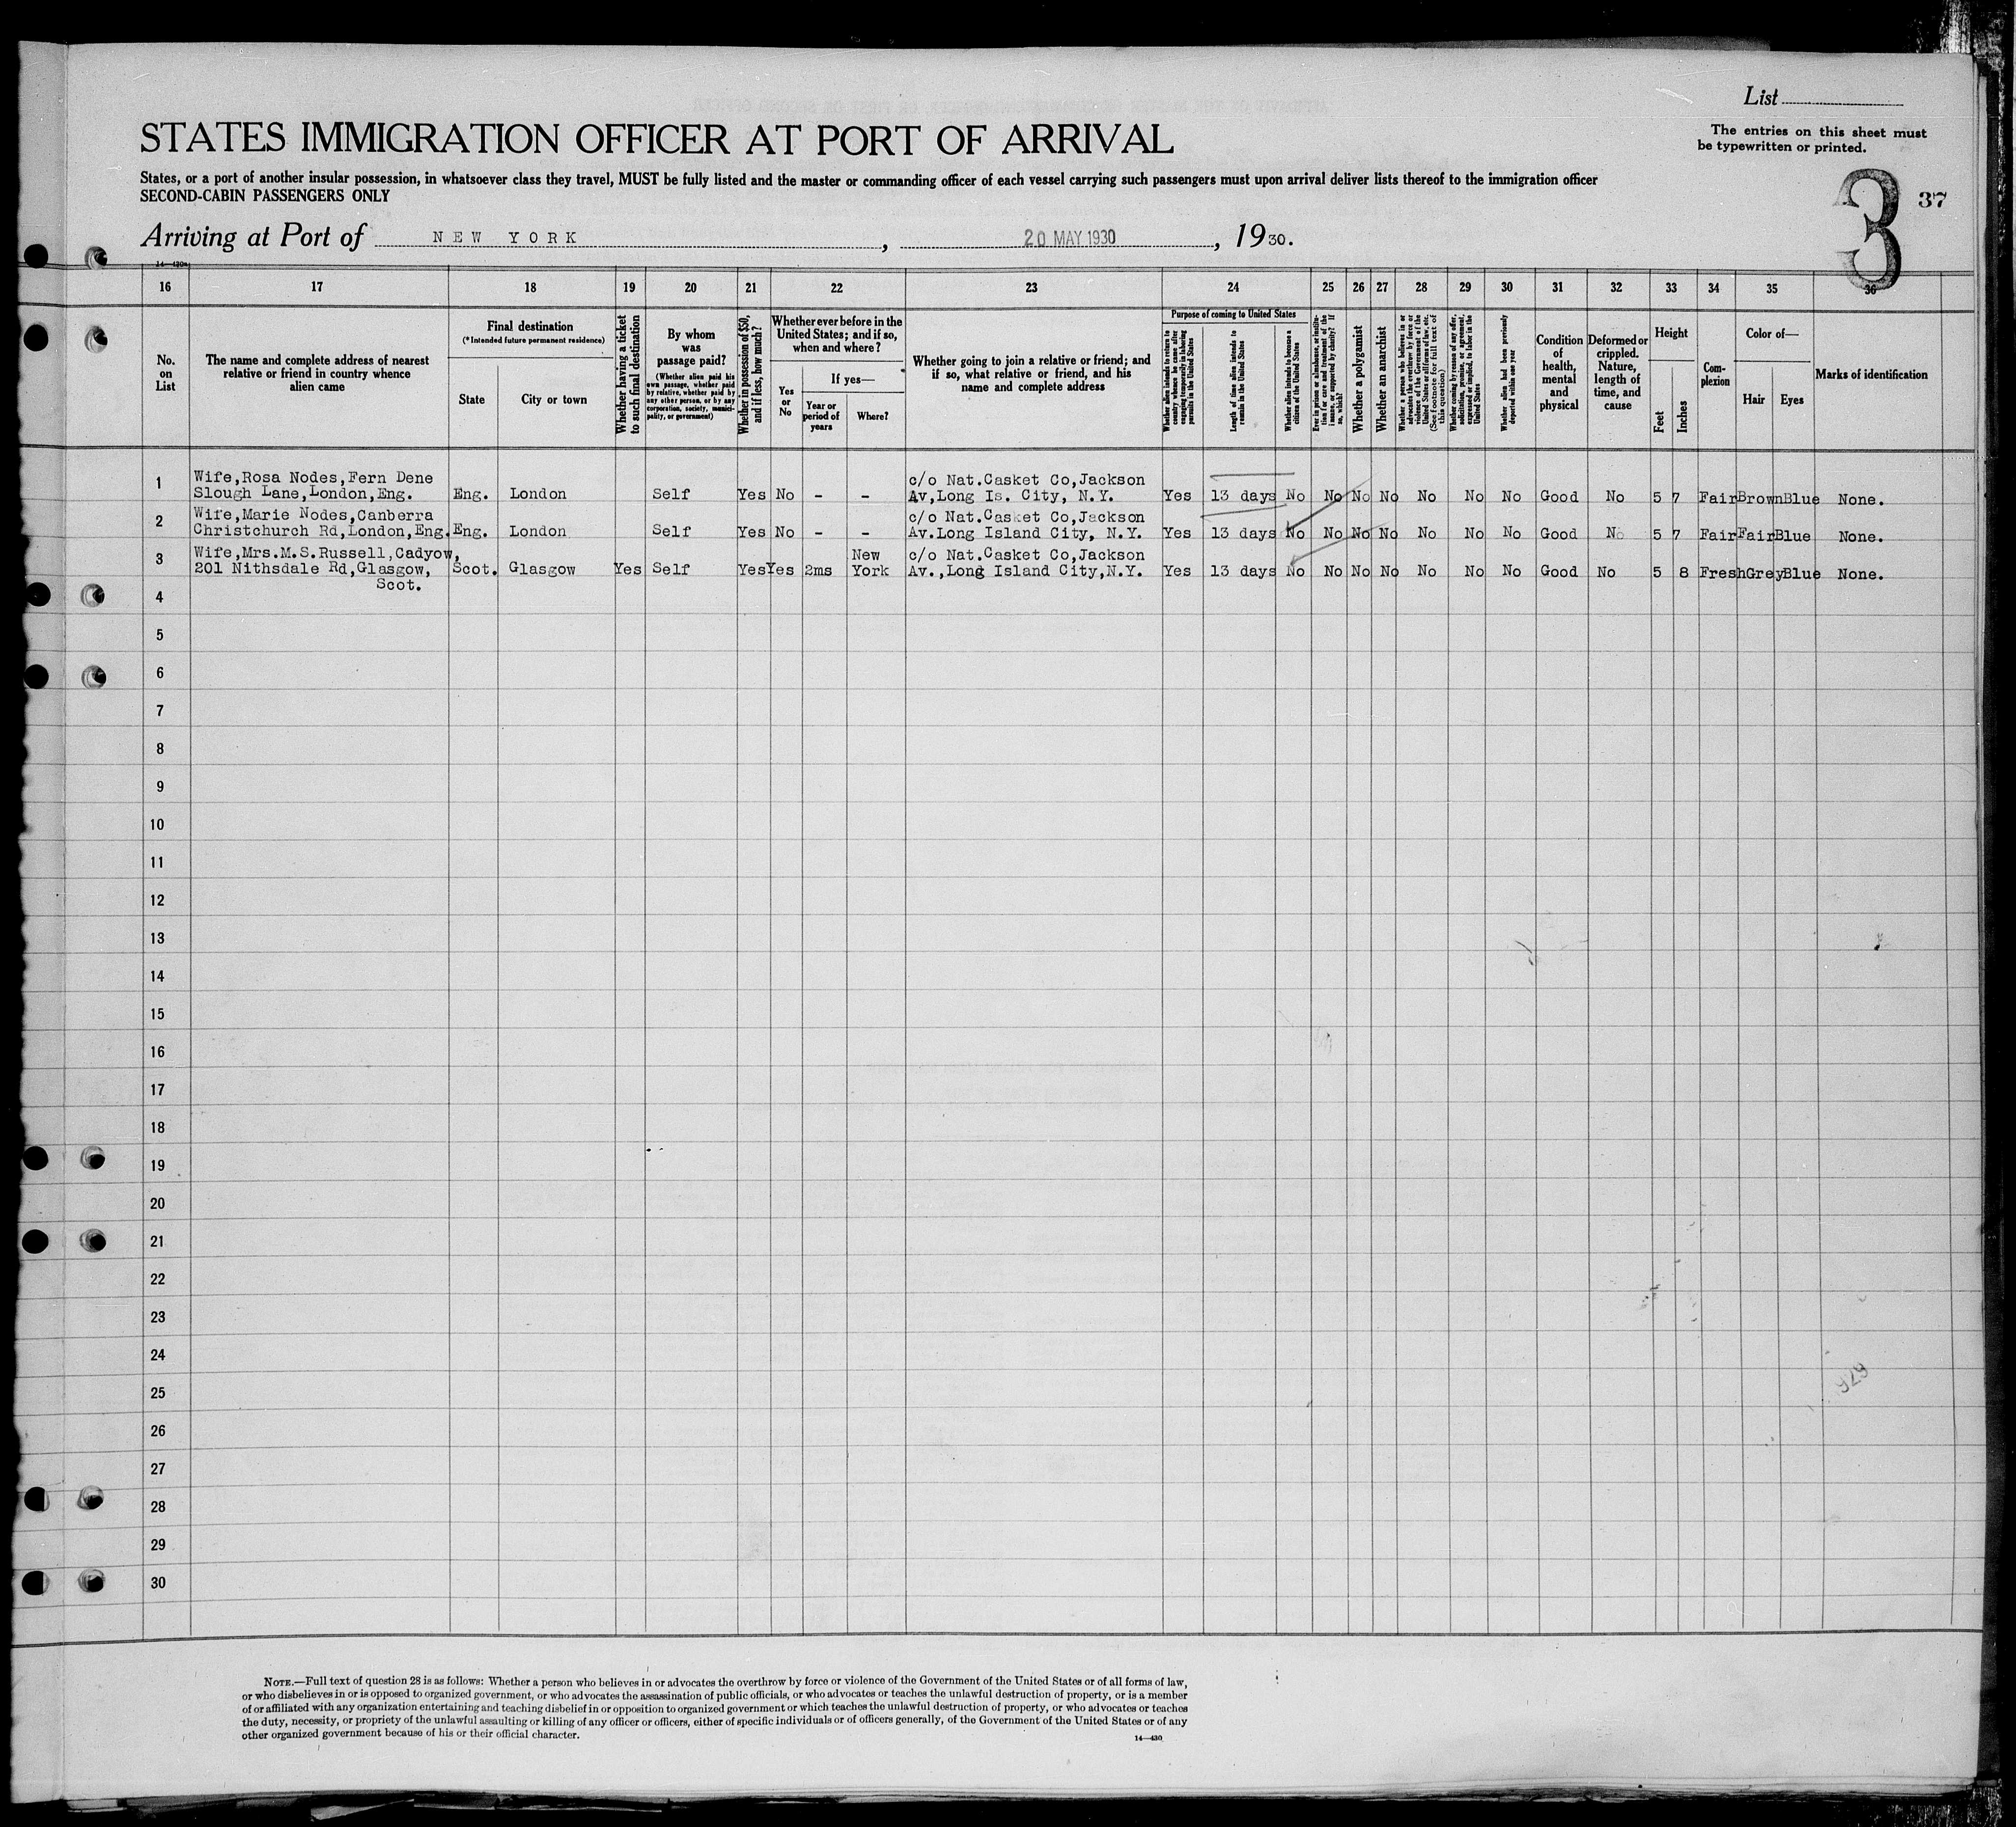 List
The entries on this sheet must
be typewritten or printed.
STATES IMMIGRATION OFFICER AT PORT OF ARRIVAL
States, or a port of another insular possession, in whatsoever class they travel, MUST be fully listed and the master or commanding officer of each vessel carrying such passengers must upon arrival deliver lists thereof to the immigration officer
SECOND-CABIN PASSENGERS ONLY
3 37
Arriving at Port of NEW YORK, 20 MAY 1930, 1930.
14—430a
16 17 18 19 20 21 22 23 24 25 26 27 28 29 30 31 32 33 34 35 36
No.
on
List
The name and complete address of nearest
relative or friend in country whence
alien came
Final destination
(*Intended future permanent residence)
State
City or town
Whether having a ticket
to such final destination
By whom
was
passage paid?
(Whether alien paid his
own passage, whether paid
by relative, whether paid by
any other person, or by any
corporation, society, munici-
pality, or government)
Whether in possession of $50,
and if less, how much?
Whether ever before in the
United States; and if so,
when and where?
Yes
or
No
If yes—
Year or
period of
years
Where?
Whether going to join a relative or friend; and
if so, what relative or friend, and his
name and complete address
Purpose of coming to United States
Whether alien intends to return to
country whence he came after
engaging temporarily in laboring
pursuits in the United States
Length of time alien intends to
remain in the United States
Whether alien intends to become a
citizen of the United States
Ever in prison or almshouse, or institu-
tion for care and treatment of the
insane, or supported by charity? If
so, which?
Whether a polygamist
Whether an anarchist
Whether a person who believes in or
advocates the overthrow by force or
violence of the Government of the
United States or all forms of law, etc.
(See footnote for full text of
this question)
Whether coming by reason of any offer,
solicitation, promise, or agreement,
expressed or implied, to labor in the
United States
Whether alien had been previously
deported within one year
Condition
of
health,
mental
and
physical
Deformed or
crippled.
Nature,
length of
time, and
cause
Height
Feet
Inches
Com-
plexion
Color of—
Hair
Eyes
Marks of identification
Wife,Rosa Nodes,Fern Dene c/o Nat.Casket Co,Jackson
1 Slough Lane,London,Eng. Eng. London Self Yes No - - Av,Long Is. City, N.Y. Yes 13 days No No No No No No No Good No 5 7 Fair Brown Blue None.
Wife,Marie Nodes,Canberra c/o Nat.Casket Co,Jackson
2 Christchurch Rd,London,Eng. Eng. London Self Yes No - - Av.Long Island City, N.Y. Yes 13 days No No No No No No No Good No 5 7 Fair Fair Blue None.
Wife,Mrs.M.S.Russell,Cadyow, New c/o Nat.Casket Co,Jackson
3 201 Nithsdale Rd,Glasgow, Scot. Glasgow Yes Self Yes Yes 2ms York Av.,Long Island City,N.Y. Yes 13 days No No No No No No No Good No 5 8 Fresh Grey Blue None.
Scot.
4
5
6
7
8
9
10
11
12
13
14
15
16
17
18
19
20
21
22
23
24
25
26
27
28
29
30
929
NOTE.—Full text of question 28 is as follows: Whether a person who believes in or advocates the overthrow by force or violence of the Government of the United States or of all forms of law,
or who disbelieves in or is opposed to organized government, or who advocates the assassination of public officials, or who advocates or teaches the unlawful destruction of property, or is a member
of or affiliated with any organization entertaining and teaching disbelief in or opposition to organized government or which teaches the unlawful destruction of property, or who advocates or teaches
the duty, necessity, or propriety of the unlawful assaulting or killing of any officer or officers, either of specific individuals or of officers generally, of the Government of the United States or of any
other organized government because of his or their official character.
14—430